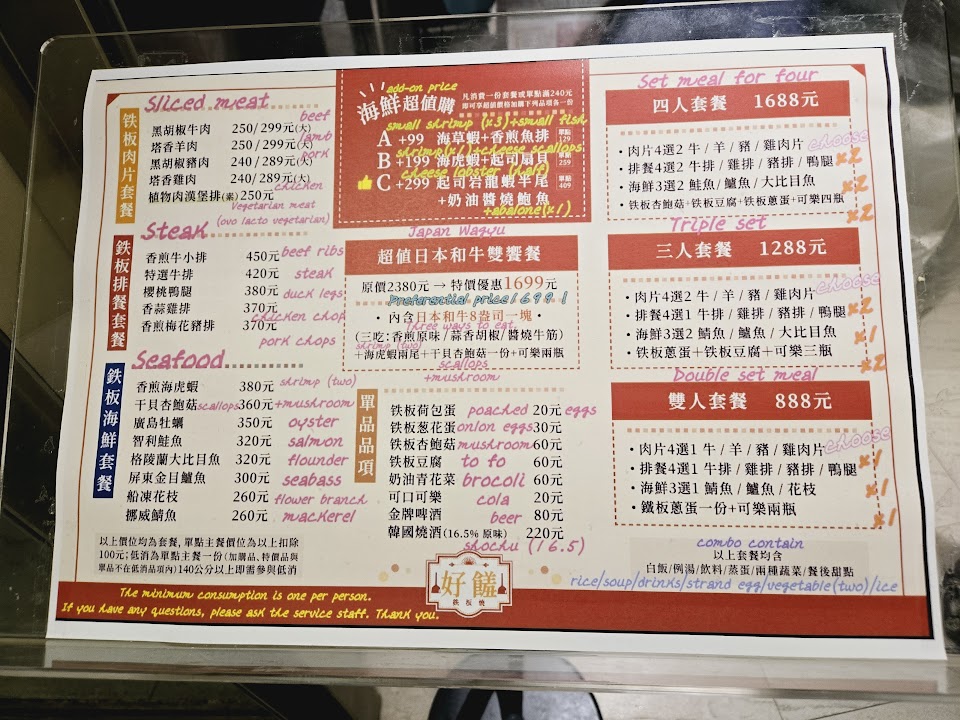 Sliced meat
铁板肉片套餐
黑胡椒牛肉 250/299元(大) beef
塔香羊肉 250/299元(大) lamb
黑胡椒豬肉 240/289元(大) pork
塔香雞肉 240/289元(大) chicken
植物肉漢堡排(素)250元
Vegetarian meat
(ovo lacto vegetarian)
Steak
鉄板排餐套餐
香煎牛小排 450元 beef ribs
特選牛排 420元 steak
櫻桃鴨腿 380元 duck legs
香蒜雞排 370元 chicken chop
香煎梅花豬排 370元 pork chops
Seafood
鉄板海鮮套餐
香煎海虎蝦 380元 shrimp (two)
干貝杏鮑菇 scallops 360元 +mushroom
廣島牡蠣 350元 oyster
智利鮭魚 320元 salmon
格陵蘭大比目魚 320元 flounder
屏東金目鱸魚 300元 seabass
船凍花枝 260元 flower branch
挪威鯖魚 260元 mackerel
以上價位均為套餐, 單點主餐價位為以上扣除
100元; 低消為單點主餐一份(加購品、特價品與
單品不在低消品項內)140公分以上即需參與低消
add-on price
海鮮超值購
凡消費一份套餐或單點滿240元
即可享超值價格加購下列品項各一份
small shrimp (x3)+small fish
A +99 海草蝦+香煎魚排 單點129
shrimp(x1)+cheese scallops
B +199 海虎蝦+起司扇貝 單點259
cheese lobster (half)
C +299 起司岩龍蝦半尾 單點409
+奶油醬燒鮑魚
+abalone(x1)
Japan Wagyu
超值日本和牛雙饗餐
原價2380元 → 特價優惠1699元
Preferential price1699!
•內含日本和牛8盎司一塊•
Three ways to eat,
(三吃:香煎原味/蒜香胡椒/醬燒牛筋)
shrimp (two)
+海虎蝦兩尾+干貝杏鮑菇一份+可樂兩瓶
scallops
+mushroom
單品品項
鉄板荷包蛋 poached 20元 eggs
鉄板葱花蛋 onlon eggs 30元
鉄板杏鮑菇 mushroom 60元
鉄板豆腐 to fo 60元
奶油青花菜 brocoli 60元
可口可樂 cola 20元
金牌啤酒 beer 80元
韓國燒酒(16.5% 原味) 220元
shochu (16.5)
Set meal for four
四人套餐 1688元
choose
•肉片4選2 牛/羊/豬/雞肉片 x2
•排餐4選2 牛排/雞排/豬排/鴨腿 x2
•海鮮3選2 鮭魚/鱸魚/大比目魚 x2
•铁板杏鮑菇+铁板豆腐+铁板蔥蛋+可樂四瓶
Triple set
三人套餐 1288元
choose
•肉片4選2 牛/羊/豬/雞肉片 x2
•排餐4選1 牛排/雞排/豬排/鴨腿 x1
•海鮮3選2 鯖魚/鱸魚/大比目魚 x2
•铁板蔥蛋+铁板豆腐+可樂三瓶
Double set meal
雙人套餐 888元
choose
•肉片4選1 牛/羊/豬/雞肉片 x1
•排餐4選1 牛排/雞排/豬排/鴨腿 x1
•海鮮3選1 鯖魚/鱸魚/花枝 x1
•鐵板蔥蛋一份+可樂兩瓶
combo contain
以上套餐均含
白飯/例湯/飲料/蒸蛋/兩種蔬菜/餐後甜點
rice/soup/drinks/strand egg/vegetable(two)/ice
好饈
鉄板燒
The minimum consumption is one per person.
If you have any questions, please ask the service staff. Thank you.